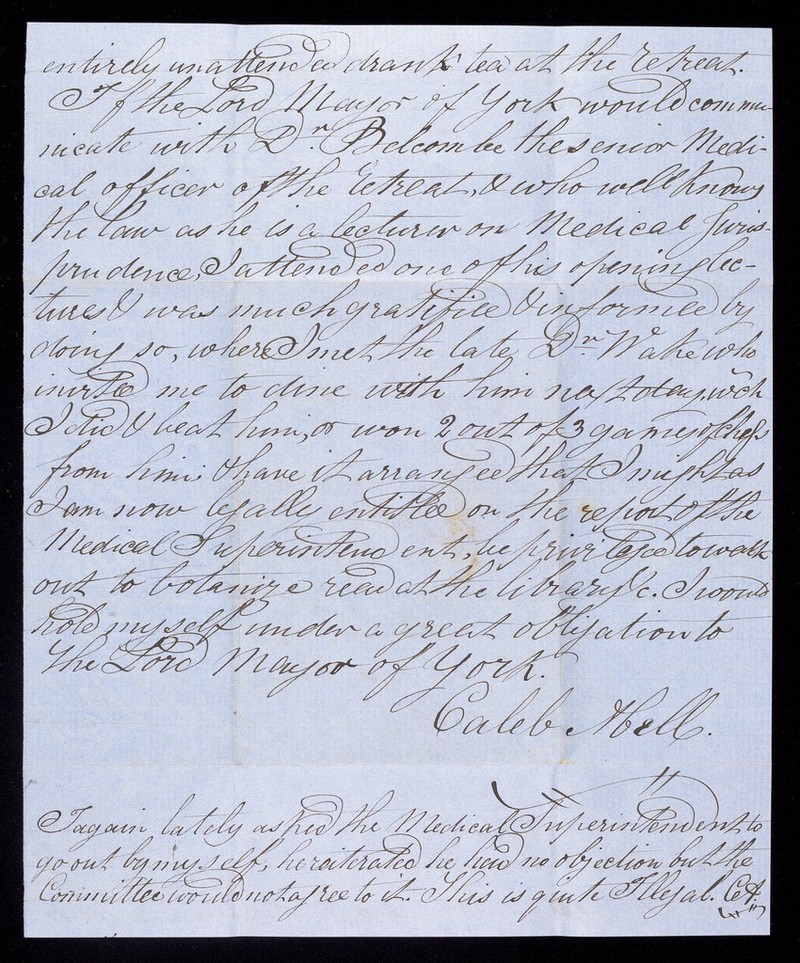 entirely unattended drank tea at the retreat.
If the Lord Mayor of York would commu-
nicate with Dr. Belcombe the senior Medi-
cal officer of the retreat, & who well knows
the law as he is a lecturer on Medical Juris-
prudence, I attended one of his opening lec-
tures & was much gratified & informed by
doing so, where I met the late Dr. Wake who
invited me to dine with him next day, wch
I did & beat him, or won 2 out of 3 games of chess
from him; & have it arranged that I might as
I am now legally entitled on the report of the
Medical Superintendent, be priviledged to walk
out to botanize read at the library &c. I would
hold myself under a great obligation to
The Lord Mayor of York.
Caleb Abell.
I again lately asked the Medical Superintendent to
go out by myself, he reiterated he had no objection but the
Committee would not agree to it. This is quite Illegal. CA.